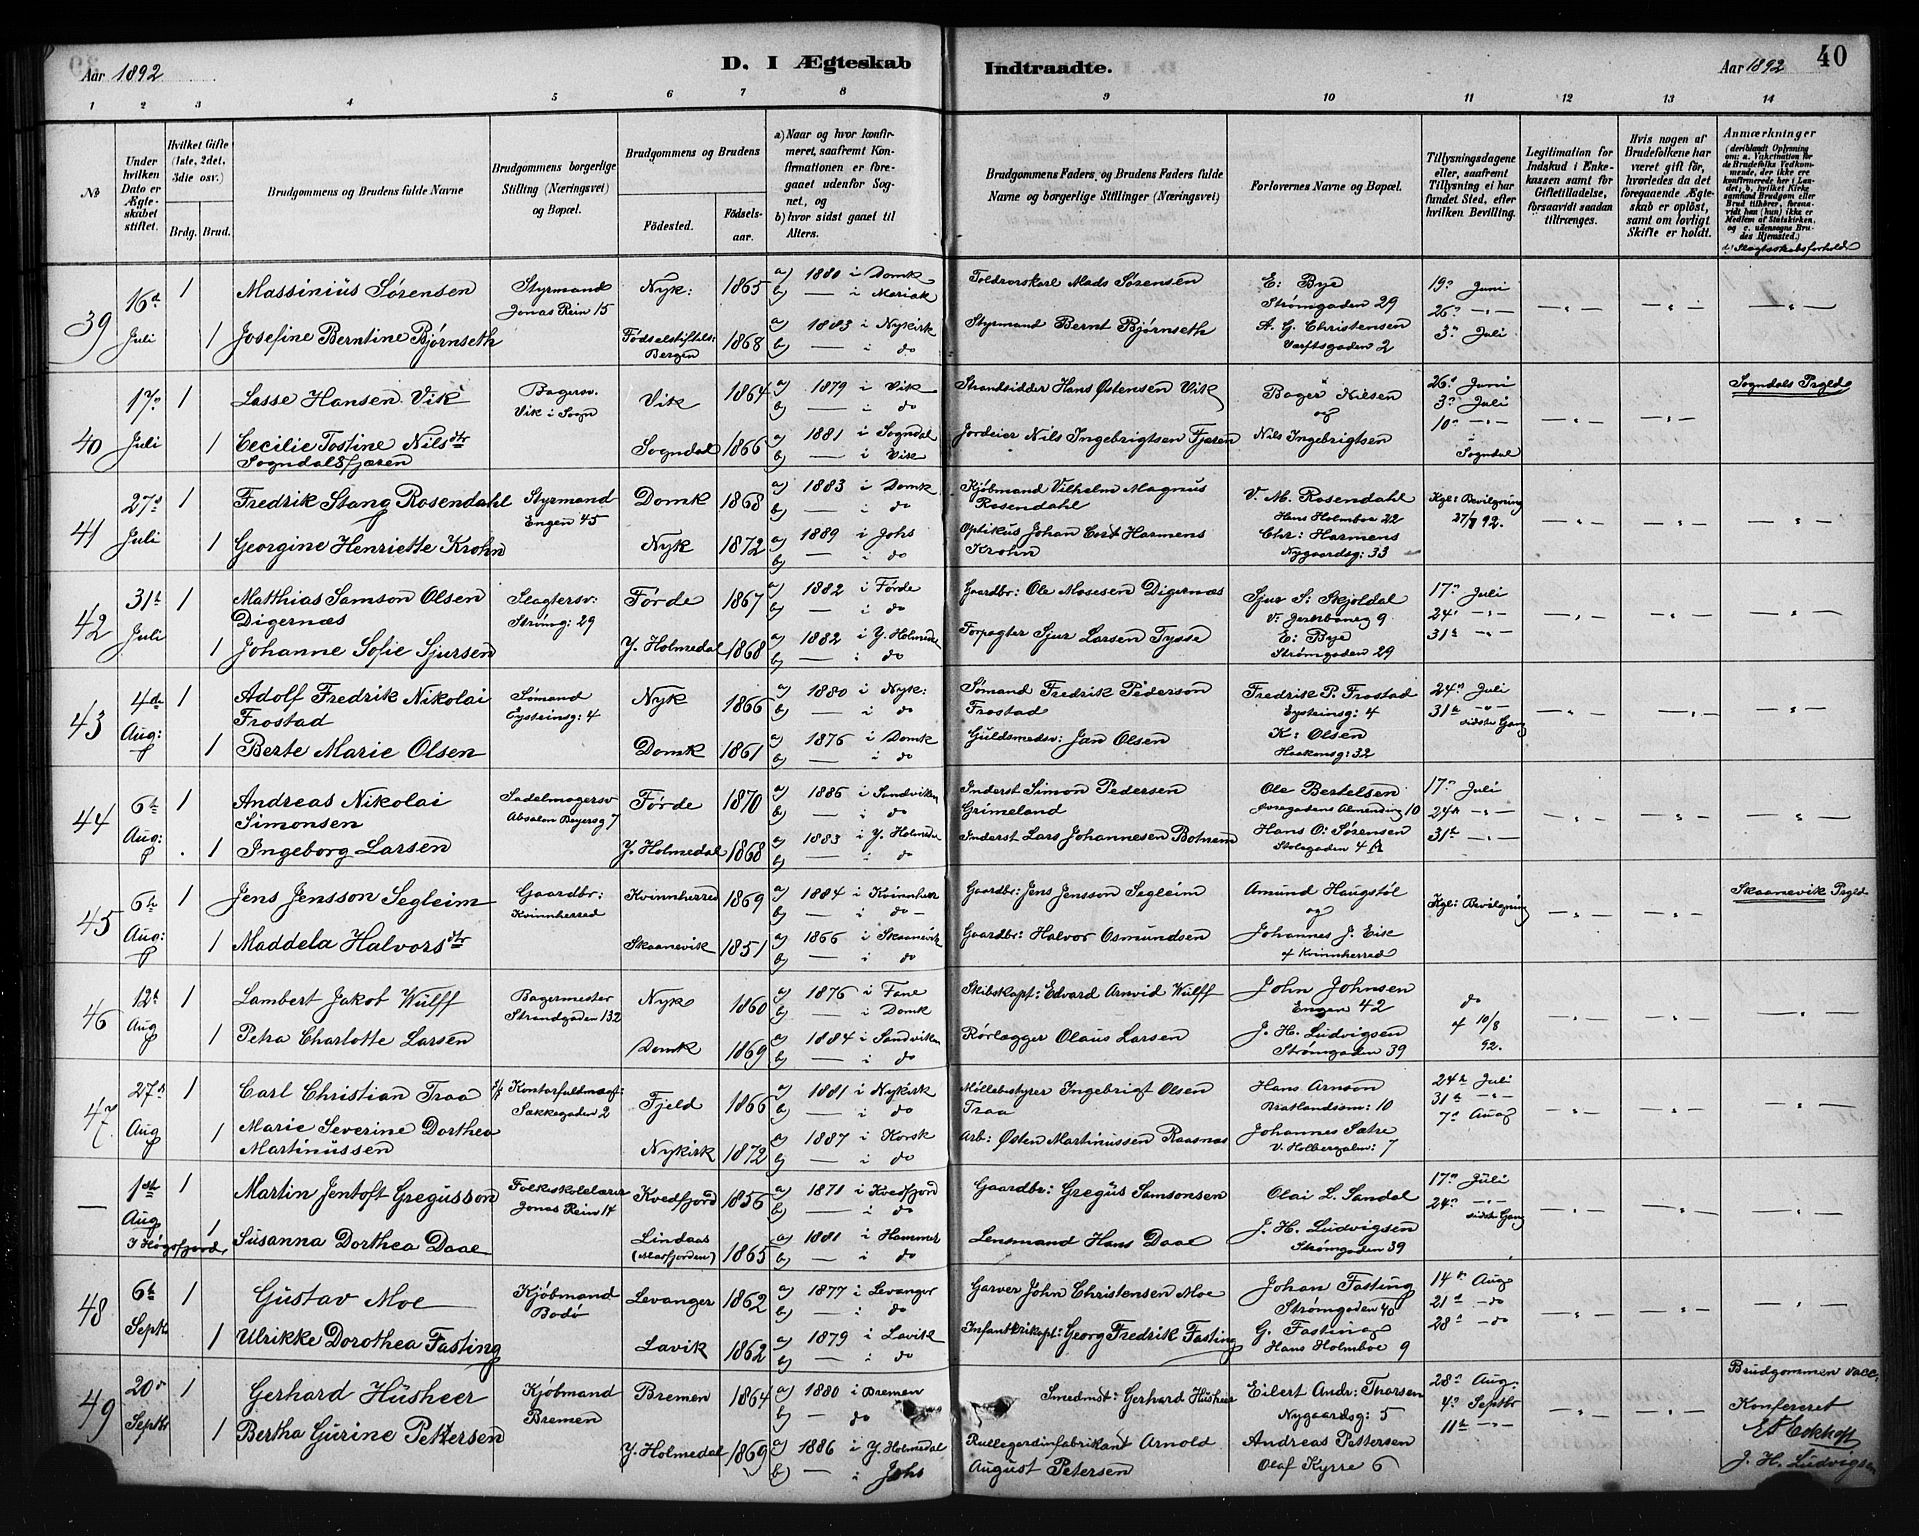 Aar 1892
D. I Ægteskab Indtraadte.
Aar 1892 40
1 2 3 4 5 6 7 8 9 10 11 12 13 14
No
Under hvilken Dato er Ægteskabet stiftet.
Hvilket Gifte (1ste, 2det, 3die osv.)
Brdg. Brud.
Brudgommens og Brudens fulde Navne
Brudgommens borgerlige Stilling (Næringsvei) og Bopæl.
Brudgommens og Brudens
Fødested. Fødselsaar.
a) Naar og hvor konfirmeret, saafremt Konfirmationen er foregaaet udenfor Sognet, og
b) hvor sidst gaaet til Alters.
Brudgommens Faders, og Brudens Faders fulde Navne og borgerlige Stillinger (Næringsvei)
Forlovernes Navne og Bopæl.
Tillysningsdagene eller, saafremt Tillysning ei har fundet Sted, efter hvilken Bevilling.
Legitimation for Indskud i Enkekassen samt for Giftetilladelse, forsaavidt saadan tiltrænges.
Hvis nogen af Brudefolkene har været gift før, hvorledes da det foregaaende Ægteskab er opløst, samt om lovligt Skifte er holdt.
Anmærkninger
(deriblandt Oplysning om: a. Vaccination for de Brudefolks Vedkommende, der ikke ere konfirmerede her i Landet; b. hvilket Kirkesamfund Brudgom og Brud tilhører, forsaavidt han (hun) ikke er Medlem af Statskirken, og c. udensogns Brudes Hjemsted.)
d) Slægtsskabsforhold
39 16d Juli 1 Massinius Sørensen Styrmand Jonas Rein 15 Nyk: 1865 a) 1880 i Domk b) — i Mariak Toldrorskarl Mads Sørensen E: Bye Strømgaden 29 19 Juni 26 —
1 Josefine Berntine Bjørnseth Fødselsstiftels: Bergen 1868 a) 1883 i Nykirk b) — i do Styrmand Bernt Bjørnseth A. G. Christensen Værftsgaden 2 3 Juli
40 17 Juli 1 Lasse Hansen Vik Bagersv. Vik i Sogn Vik 1864 a) 1879 i Vik b) — i do Strandsidder Hans Østensen Vik Bager Nilsen og 26 Juni 3 Juli Sogndals Prgld
1 Cecilie Tostine Nilsdtr Sogndalsfjæren Sogndal 1866 a) 1881 i Sogndal b) — i Vik Jordeier Nils Ingebrigtsen Fjæren Nils Ingebrigtsen 10 — i Sogndal
41 27d Juli 1 Fredrik Stang Rosendahl Styrmand Engen 45 Domk 1868 a) 1883 i Domk b) — i do Kjøbmand Vilhelm Magnus Rosendahl V. M. Rosendahl Hans Holmboe 22 Kgl: Bevilgning
1 Georgine Henriette Krohn Nyk 1872 a) 1889 i Johs b) — i do Optikus Johan Cort Harmens Krohn Chr: Harmens Nygaardsg: 33
42 31t Juli 1 Matthias Samson Olsen Digernæs Slagtersv: Strømg: 29 Førde 1867 a) 1882 i Førde b) — i do Gaardbr: Ole Mosesen Digernæs Sjur S: Skjoldal 17 Juli 24 —
1 Johanne Sofie Sjursen Y. Holmedal 1868 a) 1882 i Y. Holmedal b) — i do Forpagter Sjur Larsen Tysse E: Bye Strømgaden 29 31t —
43 4de Aug: 1 Adolf Fredrik Nikolai Frostad Sømand Eysteinsg: 4 Nyk 1866 a) 1880 i Nyk: b) — i do Sømand Fredrik Pederson Frostad Fredrik P. Frostad Eysteinsg: 4 24 Juli 31t — sidste Gang
1 Berte Marie Olsen Domk 1861 a) 1876 i Domk b) — i do Guldsmedsv: Jan Olsen K: Olsen Haakonsg: 32
44 6t Aug: 1 Andreas Nikolai Simonsen Sadelmagersv Absalon Beyersg 7 Førde 1870 a) 1886 i Sandviken b) — i do Inderst Simon Pedersen Grimeland Ole Bertelsen Øvregadens Almending 10 17 Juli 24 —
1 Ingeborg Larsen Y. Holmedal 1868 a) 1883 i Y. Holmedal b) — i do Inderst Lars Johannesen Botnem Hans O: Sørensen Stølegaden 4 A 31t —
45 6t Aug: 1 Jens Jensson Segleim Gaardbr: Kvinnherred Kvinnherred 1869 a) 1884 i Kvinnherr b) — i do Gaardbr: Jens Jensson Segleim Amund Haugstøl og Kgl: Bevilgning Skaanevik Prgld
1 Maddela Halvorsdtr Skaanevik 1851 a) 1866 i Skaanevik b) — i do Gaardbr: Halvor Osmundsen Johannes J. Eik af Kvinnherred
46 12t Aug 1 Lambert Jakob Wulff Bagermester Strandgaden 132 Nyk 1860 a) 1876 i Fane b) — i Domk Skibskapt: Edvard Arnvid Wulff John Johnsen Engen 42 do
1 Petra Charlotte Larsen Domk 1869 a) 1884 i Sandviken b) — i do Rørlægger Olaus Larsen J. H. Ludvigsen Strømgaden 39 af 10/8 92.
47 27d Aug 1 Carl Christian Traa Kontorfuldmægt: Sækkegaden 2 Fjeld 1866 a) 1881 i Nykirk b) — i do Møllebestyrer Ingebrigt Olsen Traa Hans Arnson Bratlandsm: 10 24t Juli 31t —
1 Marie Severine Dorthea Martinussen Nykirk 1872 a) 1887 i Korsk b) — i do Arb: Østen Martinussen Raasnæs Johannes Sætre V. Holbergsalm: 7 7 Aug
— 1st Aug I Høgsfjord 1 Martin Jentoft Gregusson Folkeskolelærer Jonas Rein 14 Kvedfjord 1856 a) 1871 i Kvedfjord b) — i do Gaardbr: Gregus Samsonsen Olai L. Sandal 17 Juli 24 — sidste Gang
1 Susanna Dorthea Daae Lindaas (Masfjorden) 1865 a) 1881 i Hammer b) — i do Lensmand Hans Daae J. H. Ludvigsen Strømgaden 39
48 6t Septbr 1 Gustav Moe Kjøbmand Bodø Levanger 1862 a) 1877 i Levanger b) — i do Garver John Christensen Moe Johan Fasting Strømgaden 40 14 Aug 21 do
1 Ulrikke Dorothea Fasting Lavik 1862 a) 1879 i Lavik b) — i do Infanterikapt: Georg Fredrik Fasting G. Fasting Hans Holmboe 9 28 do
49 20 Septbr 1 Gerhard Husheer Kjøbmand Bremen Bremen 1864 a) 1880 i Bremen b) — do Smedmst: Gerhard Husheer Eilert Andr: Thorsen Nygaardsg: 5 28 Aug. 4 Septbr Brudgommen vacc. Konfereret
1 Bertha Gurine Pettersen Y. Holmedal 1869 a) 1886 i Y. Holmedal b) — i Johs Rullegardinfabrikant Arnold August Petersen Andreas Pettersen Olaf Kyrre 6 11t — J. H. Ludvigsen